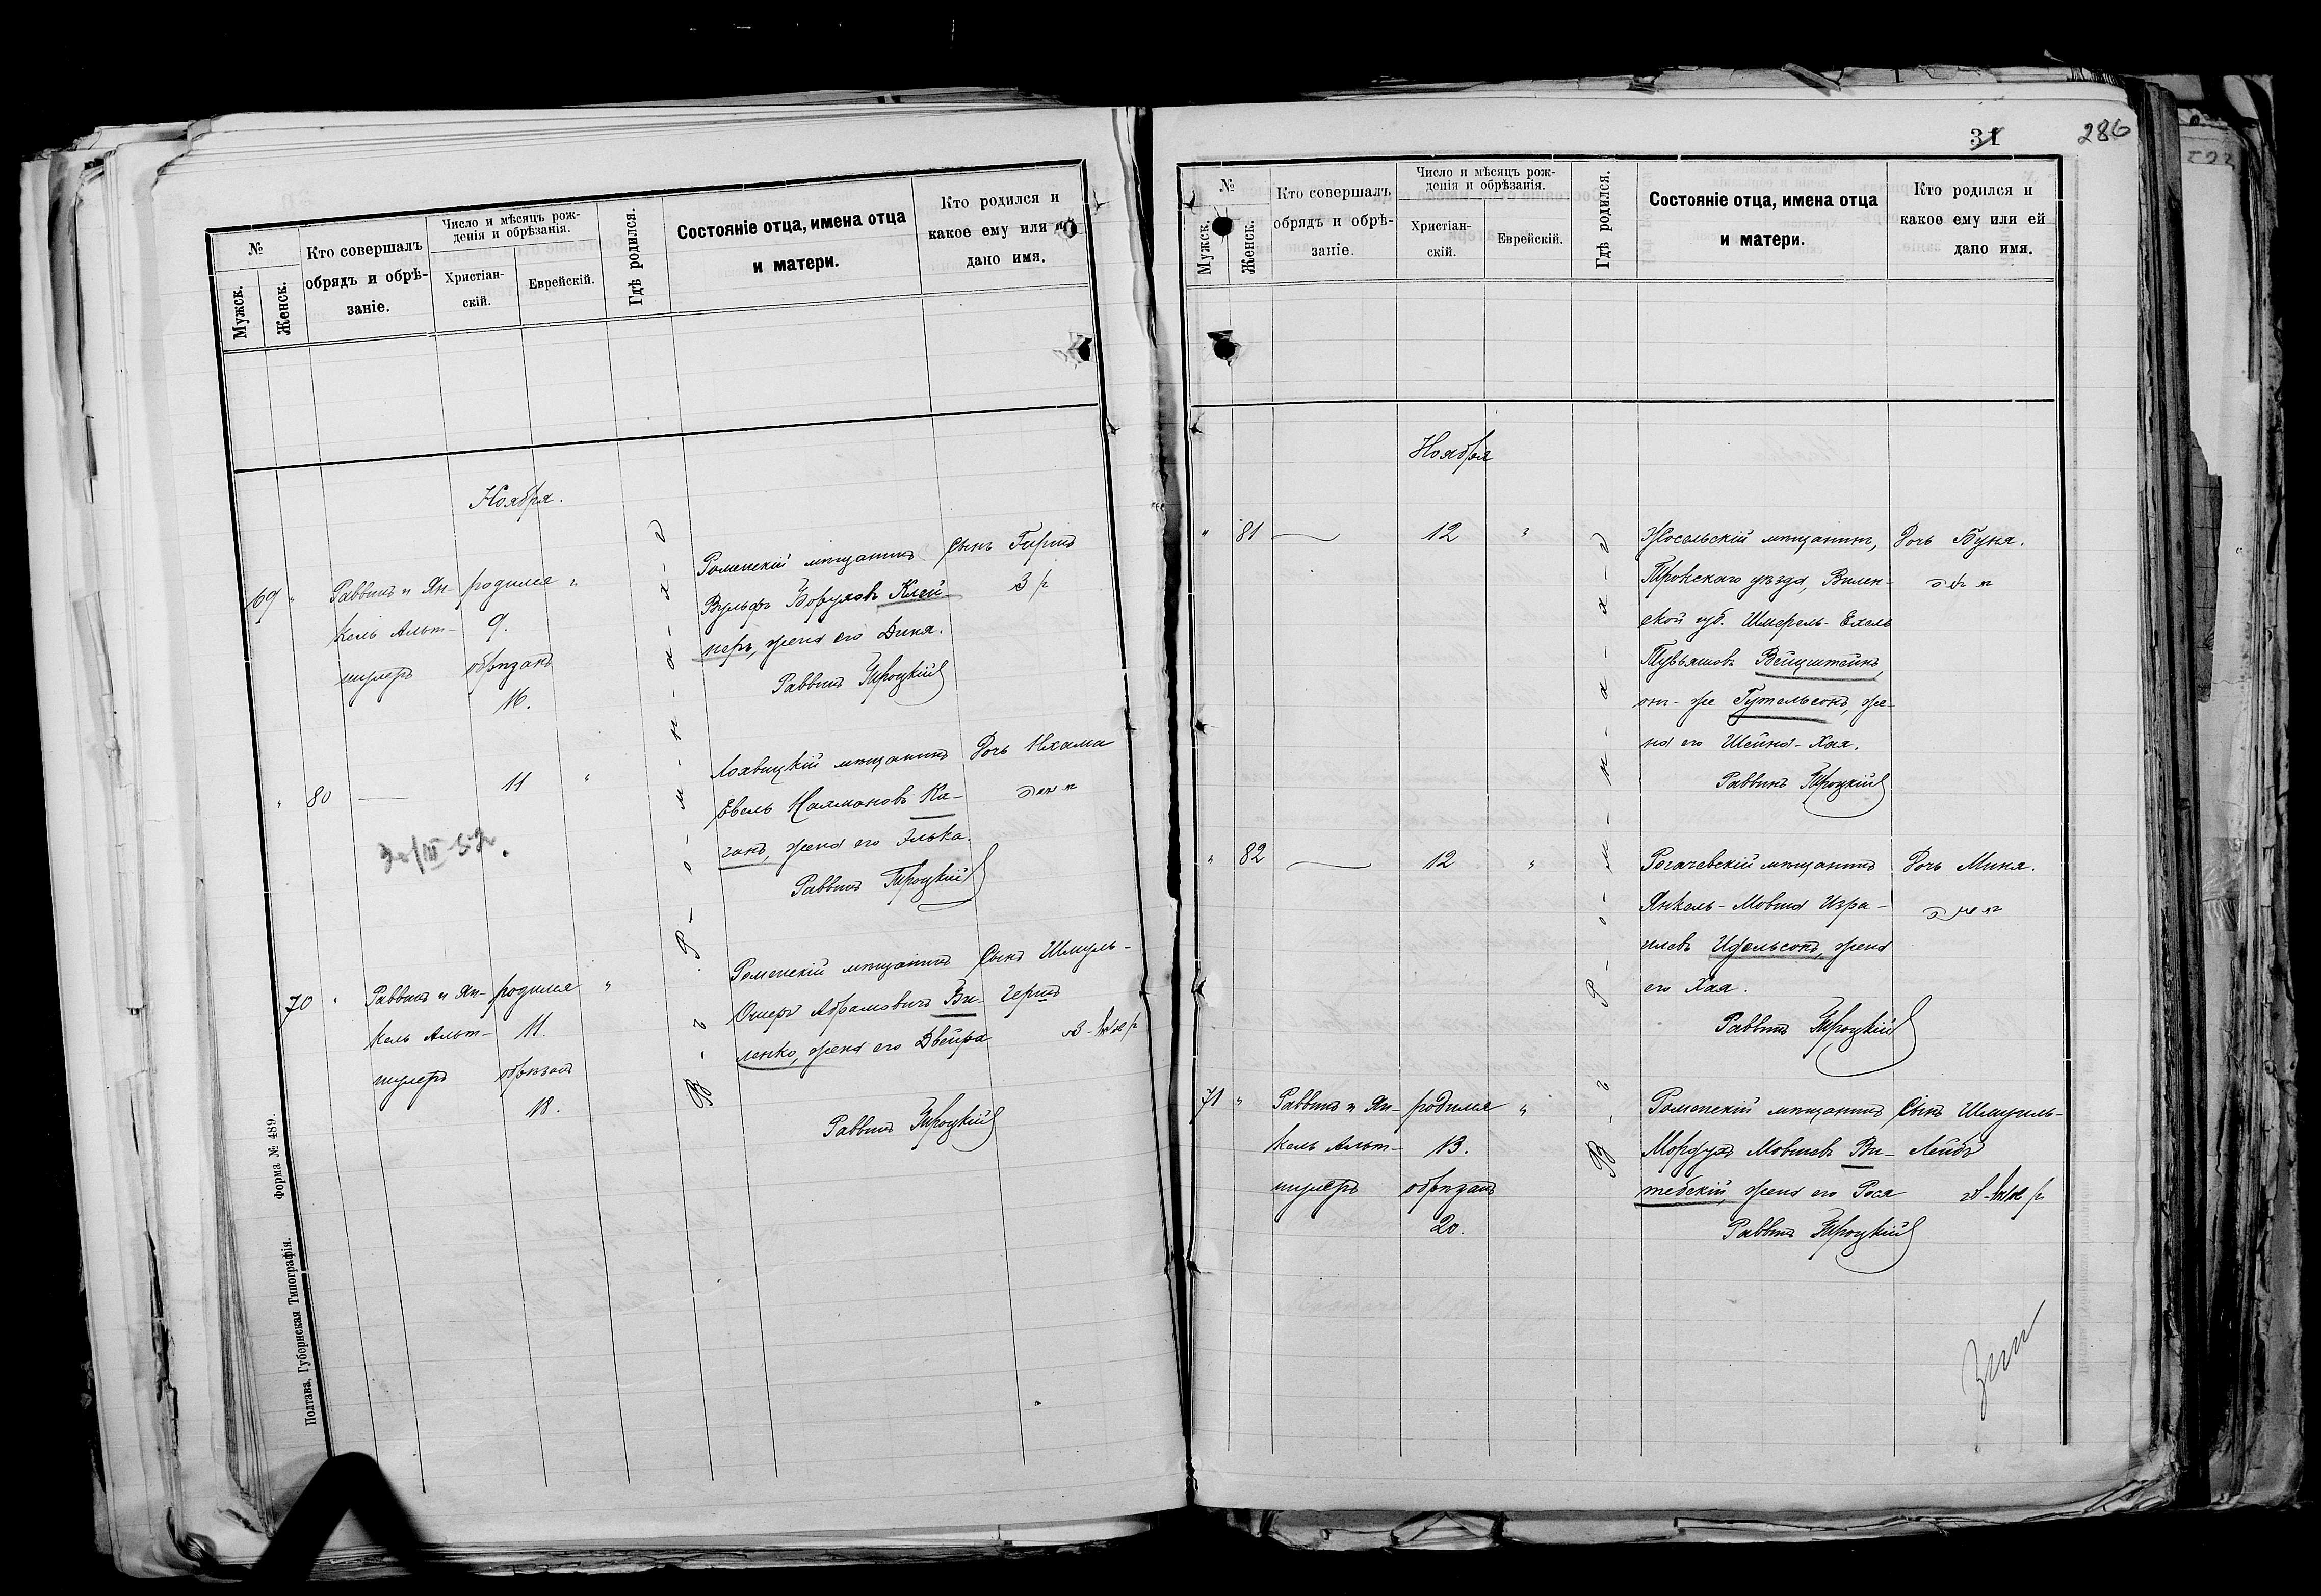 №
Мужск.
Женск.
Кто совершалъ
обрядъ и обрѣ-
заніе.
Число и мѣсяцъ рож-
денія и обрѣзанія.
Христіан-
скій.
Еврейскій.
Гдѣ родился.
Состояніе отца, имена отца
и матери.
Кто родился и
какое ему или
дано имя.
Ноября.
69 " Раввинъ и Ян-
кель Альт-
шулеръ
родился "
9.
обрѣзанъ
16.
Роменскій мѣщанинъ
Вульфъ Боруховъ Клей-
неръ, жена его Дина.
Раввинъ
Сынъ Гиршъ
" 80 —
11 "
Лохвицкій мѣщанинъ
Евель Нахмановъ Ка-
ганъ, жена его Элька.
Раввинъ
Дочь Нхама
70 " Раввинъ и Ян-
кель Альт-
шулеръ
родился "
11.
обрѣзанъ
18.
Роменскій мѣщанинъ
Ошеръ Абрамовичъ Ви-
ленко, жена его Двейра
Раввинъ
Сынъ Шмуль-
Гершъ
В-г Р-о-м-н-а-х-д
Форма № 489.
Полтава, Губернская Типографія.
31
286
№
Мужск.
Женск.
Кто совершалъ
обрядъ и обрѣ-
заніе.
Число и мѣсяцъ рож-
денія и обрѣзанія.
Христіан-
скій.
Еврейскій.
Гдѣ родился.
Состояніе отца, имена отца
и матери.
Кто родился и
какое ему или ей
дано имя.
Ноября
" 81 —
12 "
мѣщанинъ,
Трокскаго уѣзда, Вилен-
ской губ. Шмерель-Ехель
Тувьяшовъ Вейнштейнъ,
онъ-же Гутельсонъ, же-
на его Шейна-Хая.
Раввинъ
Дочь Буня.
" 82 —
12 "
Рогачевскій мѣщанинъ
Янкель-Мовша Изра-
илевъ Идельсонъ, жена
его Хая.
Раввинъ
Дочь Миня.
71 " Раввинъ и Ян-
кель Альт-
шулеръ
родился "
13.
обрѣзанъ
20.
Роменскій мѣщанинъ
Мордухъ Мовшевъ Ви-
тебскій, жена его Рося
Раввинъ
Сынъ Шмуиль-
Лейбъ
В-г Р-о-м-н-а-х-д